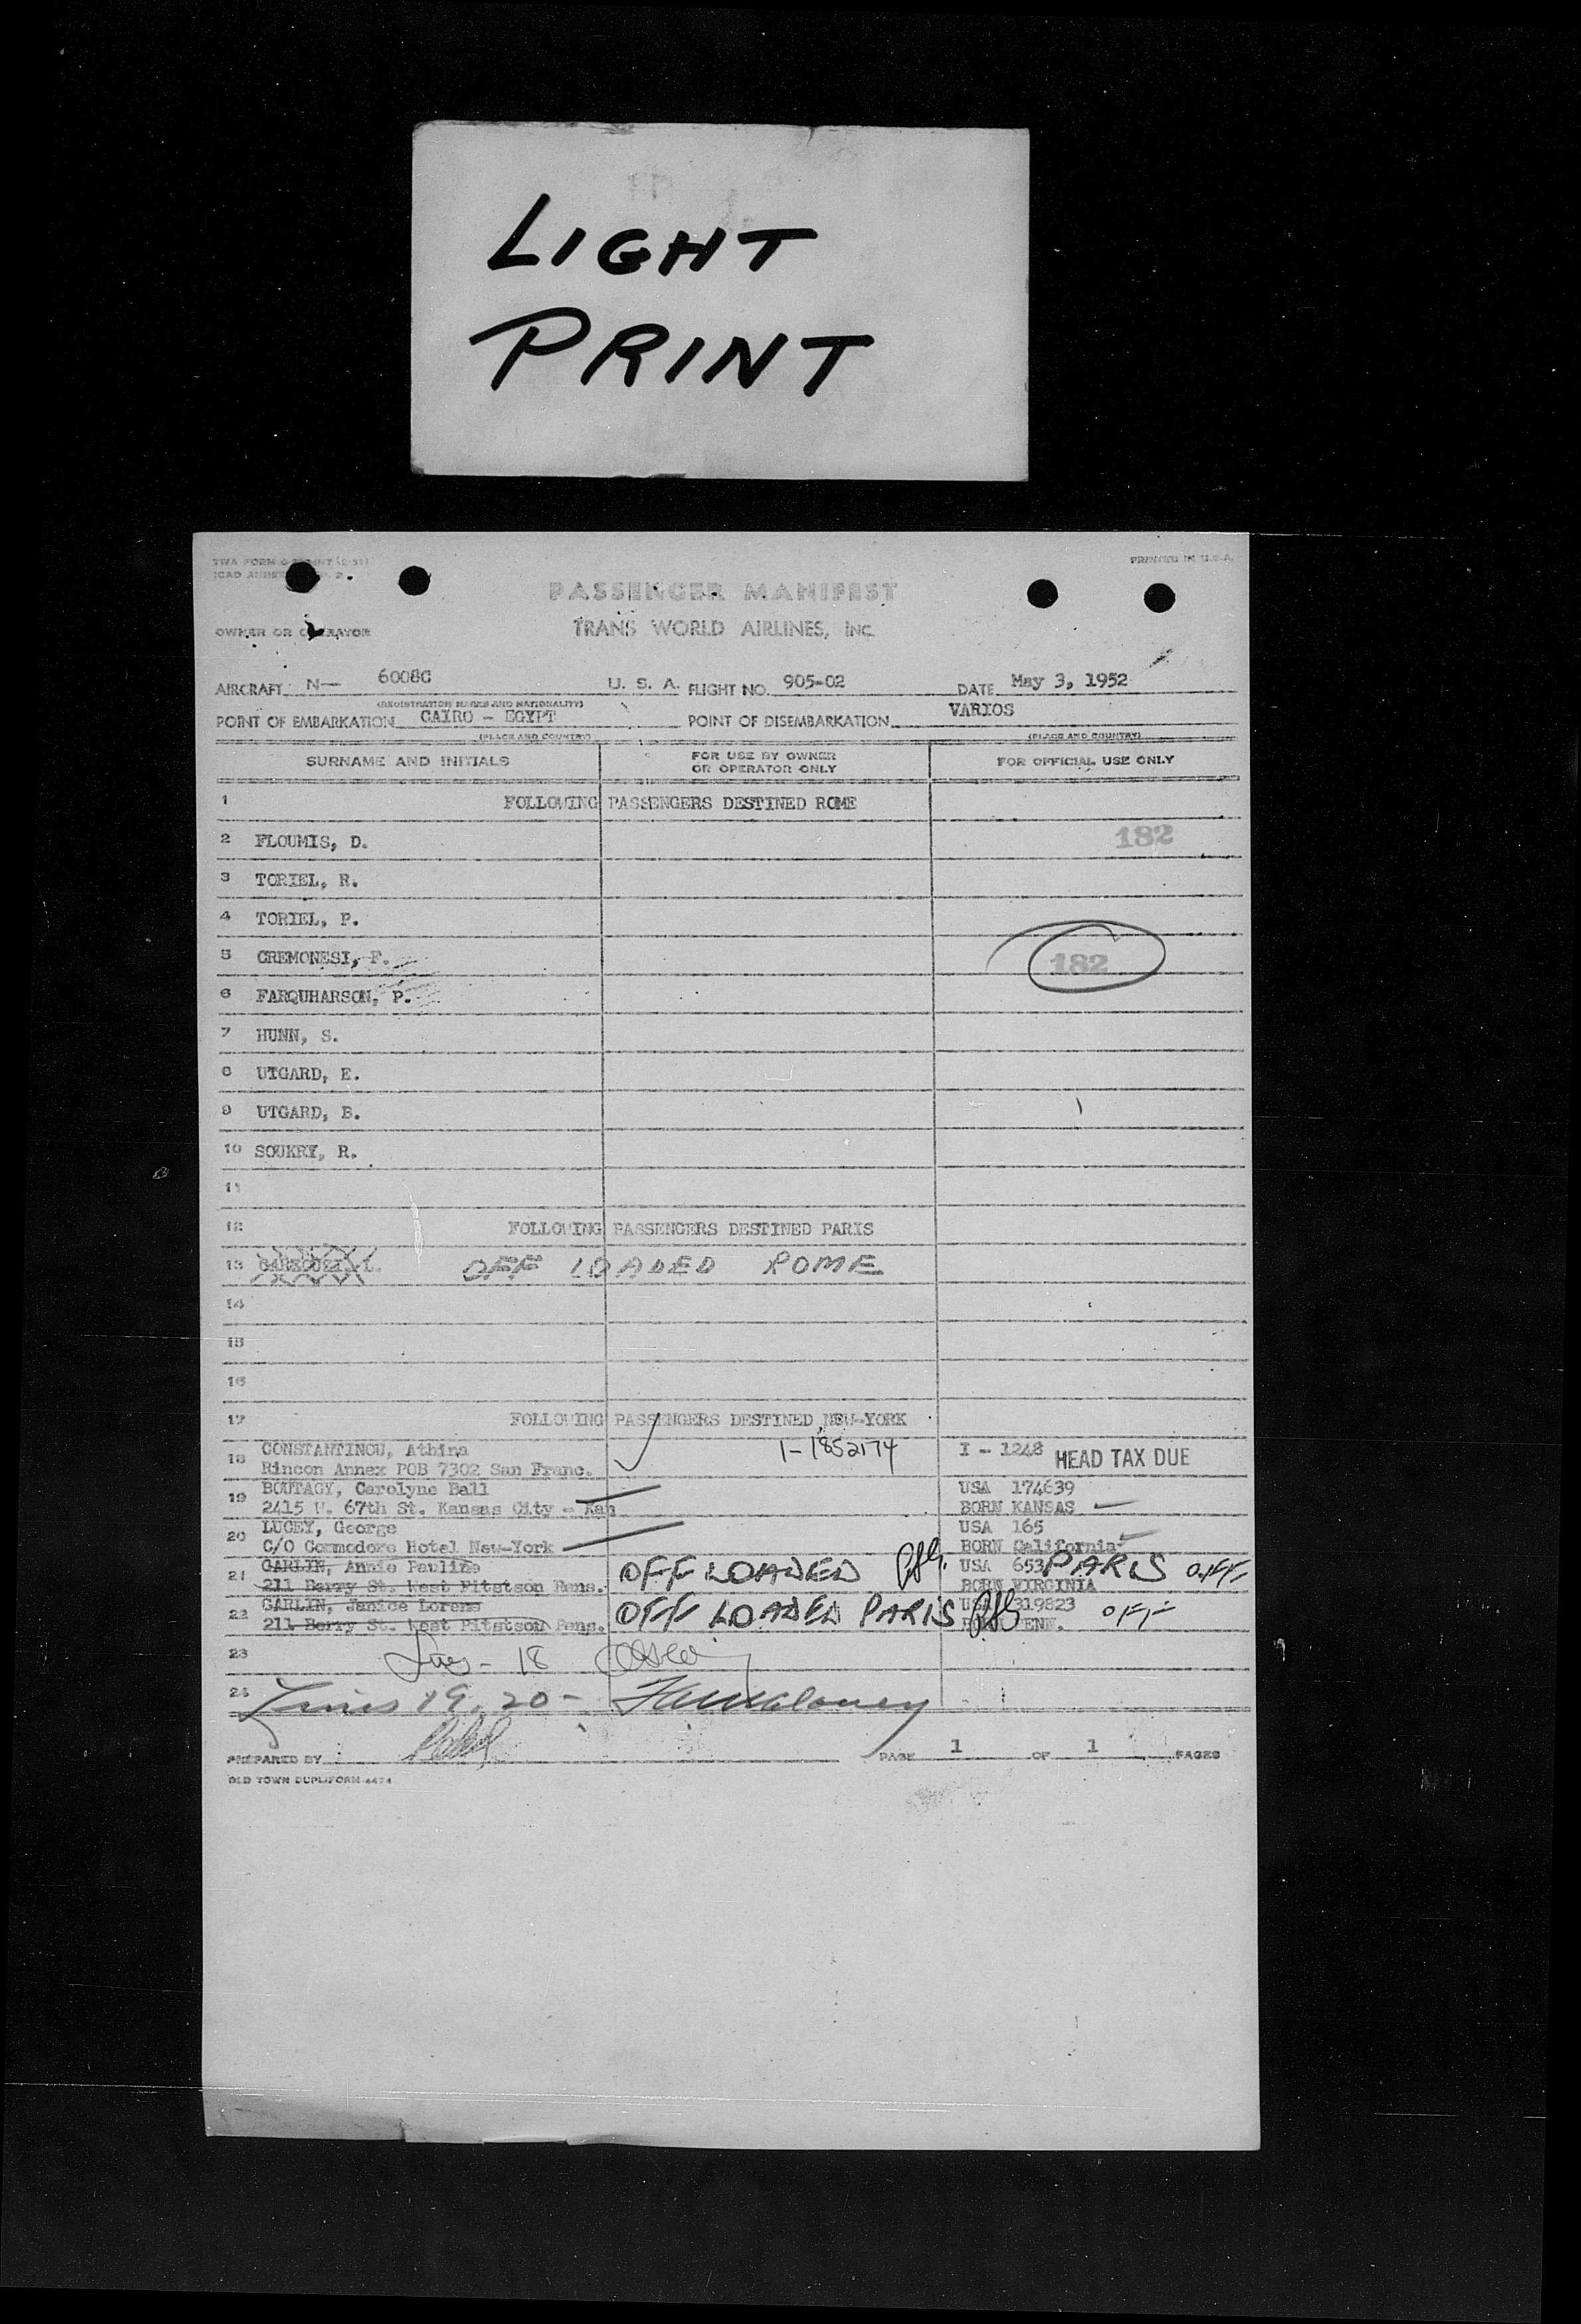 LIGHT
PRINT
PRINTED IN U.S.A.
PASSENGER MANIFEST
OWNER OR OPERATOR
TRANS WORLD AIRLINES, INC.
AIRCRAFT N— 6008C U. S. A. FLIGHT NO. 905-02 DATE May 3, 1952
(REGISTRATION MARKS AND NATIONALITY)
POINT OF EMBARKATION CAIRO - EGYPT POINT OF DISEMBARKATION VARIOS
(PLACE AND COUNTRY) (PLACE AND COUNTRY)
SURNAME AND INITIALS FOR USE BY OWNER OR OPERATOR ONLY FOR OFFICIAL USE ONLY
1 FOLLOWING PASSENGERS DESTINED ROME
2 FLOUMIS, D. 182
3 TORIEL, R.
4 TORIEL, P.
5 CREMONESI, F. 182
6 FARQUHARSON, P.
7 HUNN, S.
8 UTGARD, E.
9 UTGARD, B.
10 SOUKRY, R.
11
12 FOLLOWING PASSENGERS DESTINED PARIS
13 OFF LOADED ROME
14
15
16
17 FOLLOWING PASSENGERS DESTINED NEW-YORK
18 CONSTANTINOU, Athina 1-1852174 I - 1248 HEAD TAX DUE
Rincon Annex POB 7302 San Franc.
19 BOUTAGY, Carolyne Ball USA 174639
2415 W. 67th St. Kansas City - Kan BORN KANSAS
20 LUCEY, George USA 165
C/O Commodore Hotel New-York BORN California
21 GARLIN, Annie Pauline OFF LOADED USA 653 PARIS OFF
211 Berry St. West Pitstson Pens. BORN VIRGINIA
22 GARLIN, Janice Lorene OFF LOADED PARIS USA 319823 OFF
211 Berry St. West Pitstson Pens. PENN.
23 18
24 Lines 19, 20-
PREPARED BY PAGE 1 OF 1 PAGES
OLD TOWN DUPLIFORM 4474